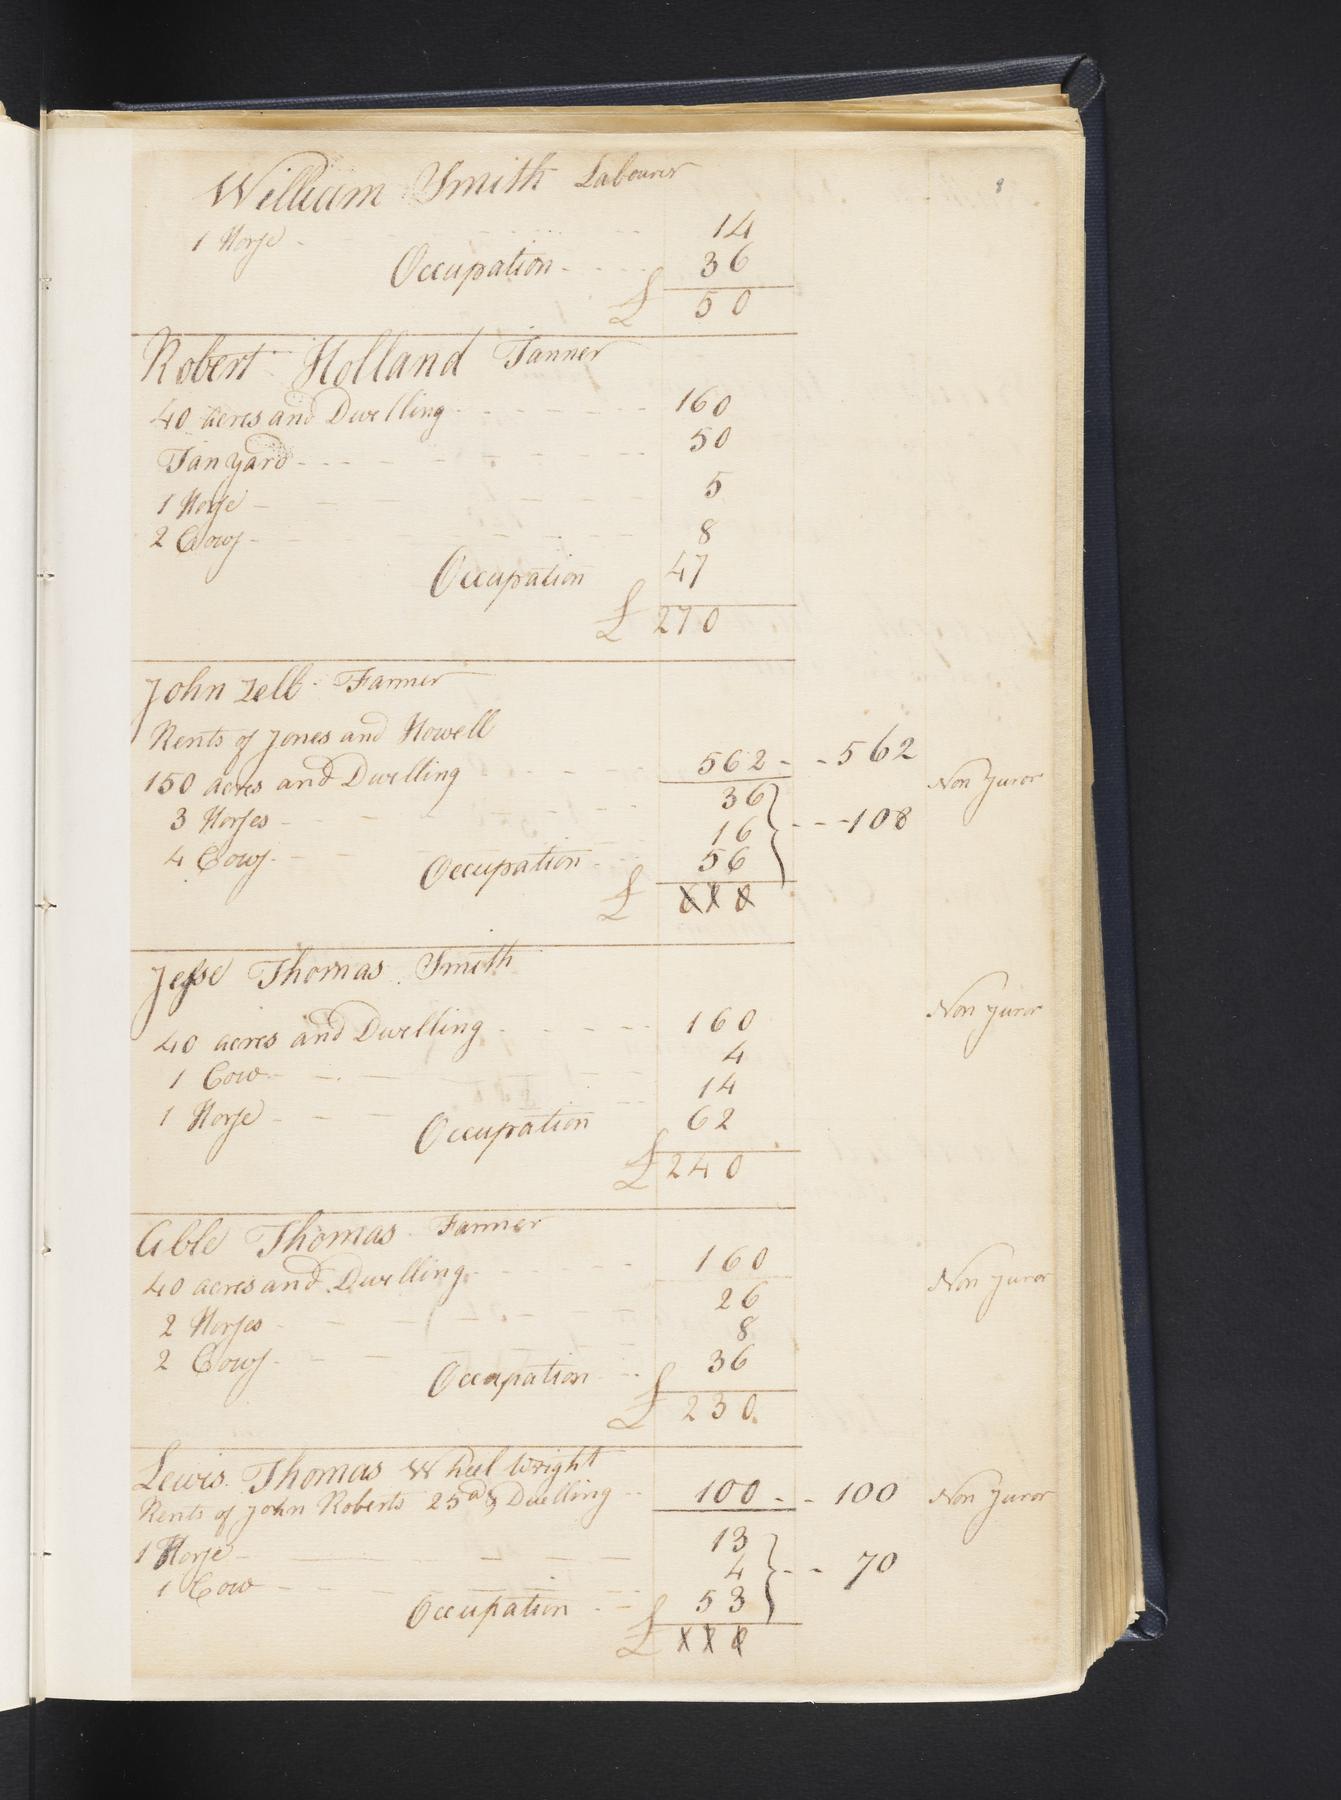 8
William Smith Labourer
1 Horse - 14
Occupation - 36
£ 50
Robert Holland Tanner
40 acres and Dwelling - 160
Tanyard - 50
1 Horse - 5
2 Cows - 8
Occupation 47
£ 270
John Zell Farmer
Rents of Jones and Howell
150 acres and Dwelling 562 - - 562 Non Juror
3 Horses - 36
4 Cows - 16 - - - 108
Occupation - 56
£
Jesse Thomas Smith Non Juror
40 acres and Dwelling - 160
1 Cow - 4
1 Horse - 14
Occupation 62
£ 240
Able Thomas Farmer
40 acres and Dwelling - 160 Non Juror
2 Horses - 26
2 Cows - 8
Occupation - 36
£ 230
Lewis Thomas Wheel Wright
Rents of John Roberts 25 as & Dwelling - 100 - - 100 Non Juror
1 Horse - 13
1 Cow - 4 - - 70
Occupation - 53
£